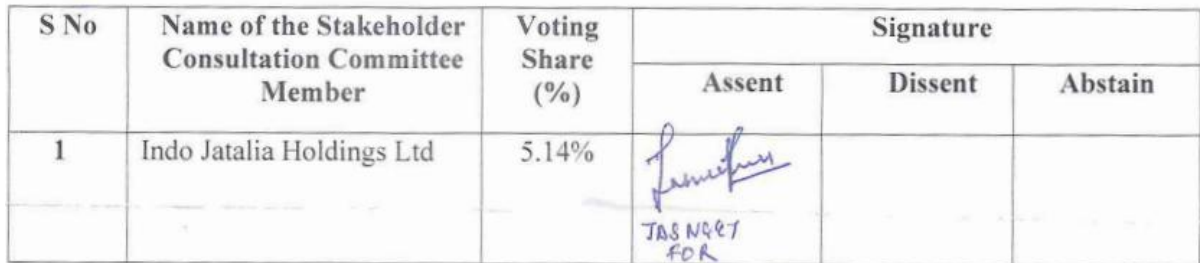 S No Name of the Stakeholder Consultation Committee Member Voting Share (%) Signature
Assent Dissent Abstain
1 Indo Jatalia Holdings Ltd 5.14%
FOR